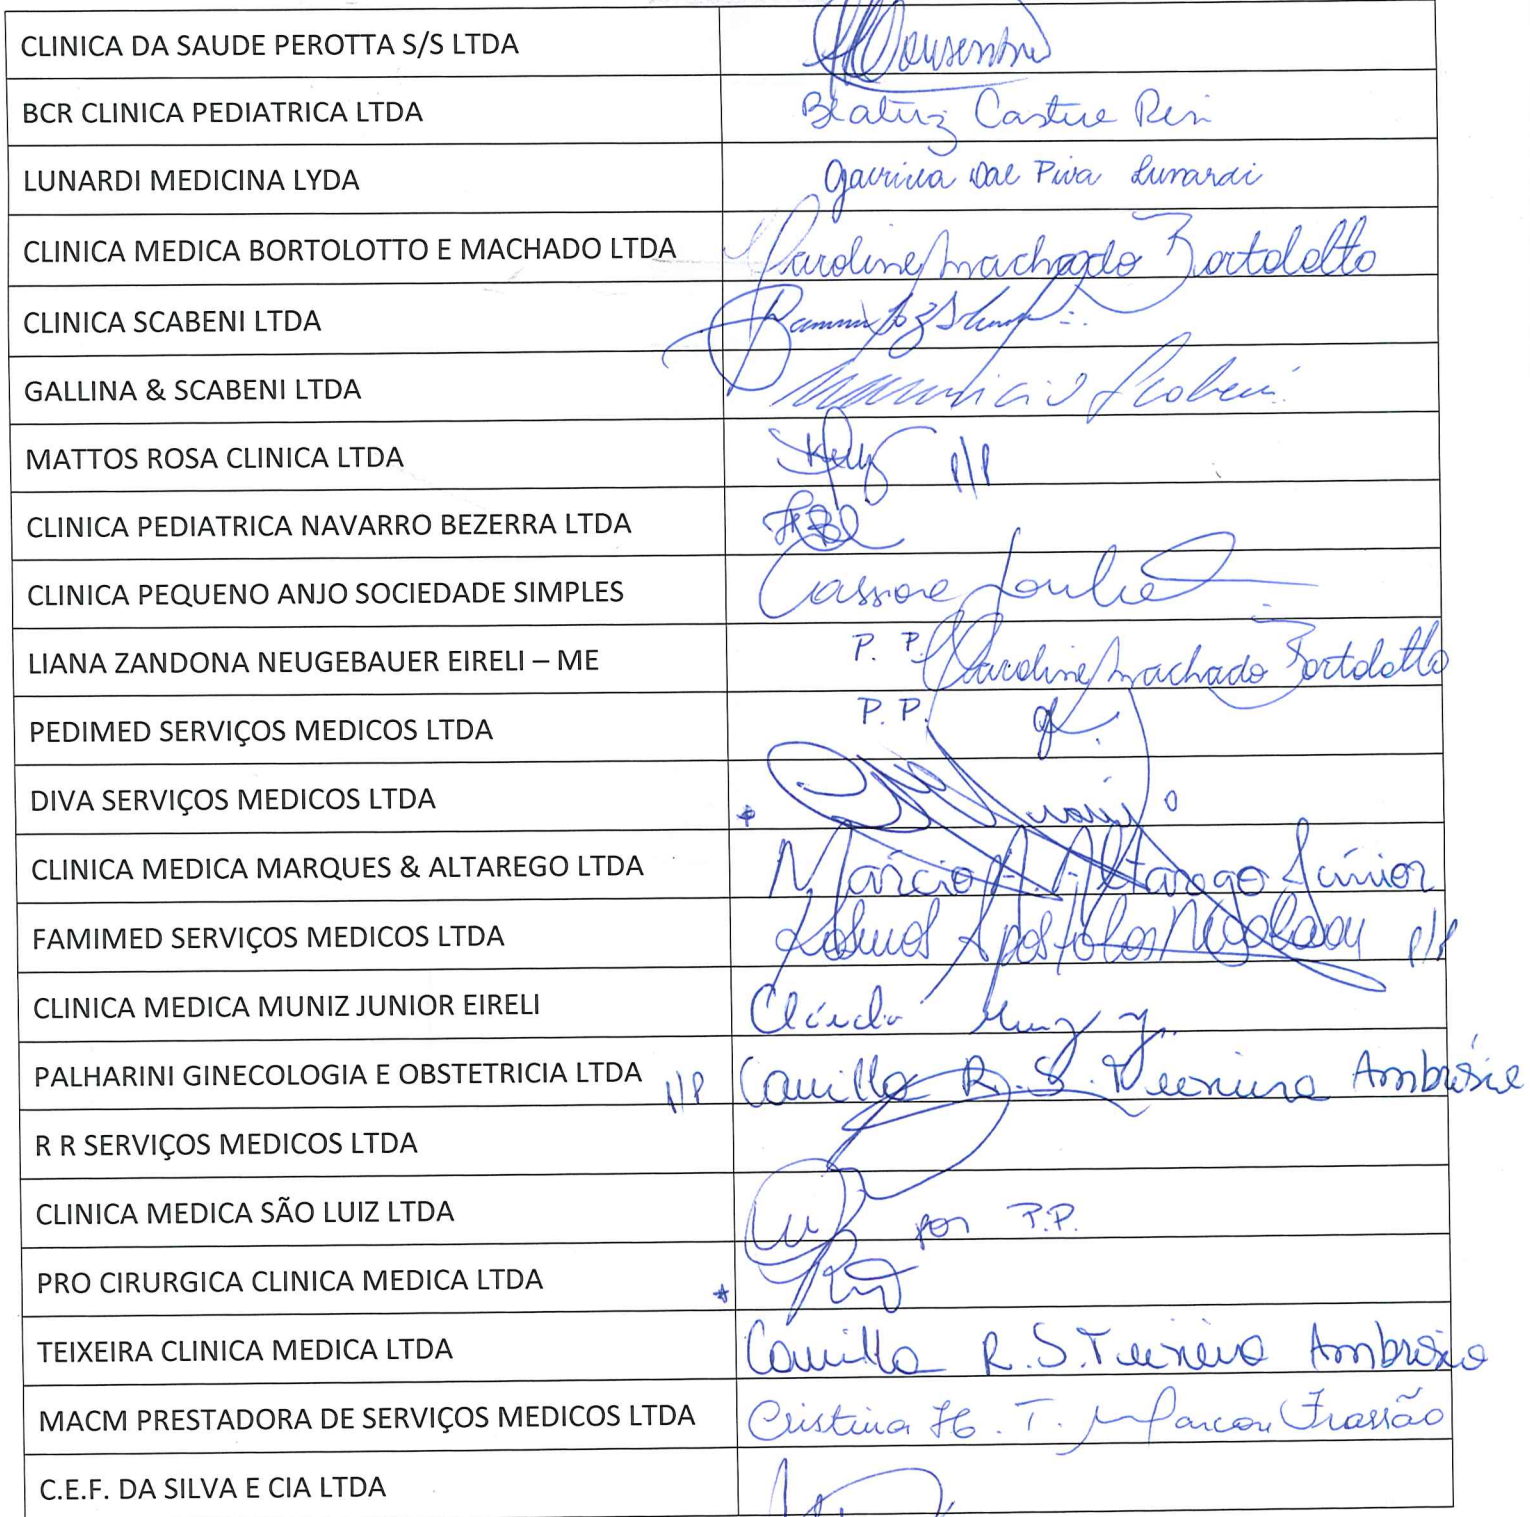 CLINICA DA SAUDE PEROTTA S/S LTDA
BCR CLINICA PEDIATRICA LTDA Beatriz Castre
LUNARDI MEDICINA LYDA Dal Piva Lunardi
CLINICA MEDICA BORTOLOTTO E MACHADO LTDA Caroline Machado Bortolotto
CLINICA SCABENI LTDA
GALLINA & SCABENI LTDA Mauricio Scabeni
MATTOS ROSA CLINICA LTDA P/P
CLINICA PEDIATRICA NAVARRO BEZERRA LTDA
CLINICA PEQUENO ANJO SOCIEDADE SIMPLES
LIANA ZANDONA NEUGEBAUER EIRELI – ME P. P. Caroline Machado Bortolotto
PEDIMED SERVIÇOS MEDICOS LTDA P. P.
DIVA SERVIÇOS MEDICOS LTDA
CLINICA MEDICA MARQUES & ALTAREGO LTDA Márcio A. Altarego Júnior
FAMIMED SERVIÇOS MEDICOS LTDA Apostolos Nicolaou P/P
CLINICA MEDICA MUNIZ JUNIOR EIRELI Cláudio Muniz Jr.
PALHARINI GINECOLOGIA E OBSTETRICIA LTDA P/P Camilla R. S. Teixeira Ambrósio
R R SERVIÇOS MEDICOS LTDA
CLINICA MEDICA SÃO LUIZ LTDA por P.P.
PRO CIRURGICA CLINICA MEDICA LTDA
TEIXEIRA CLINICA MEDICA LTDA Camilla R. S. Teixeira Ambrósio
MACM PRESTADORA DE SERVIÇOS MEDICOS LTDA Cristina H. T. Marcon Frassão
C.E.F. DA SILVA E CIA LTDA